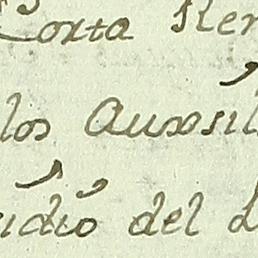 Corta Ren
los Auxsil
idio del L